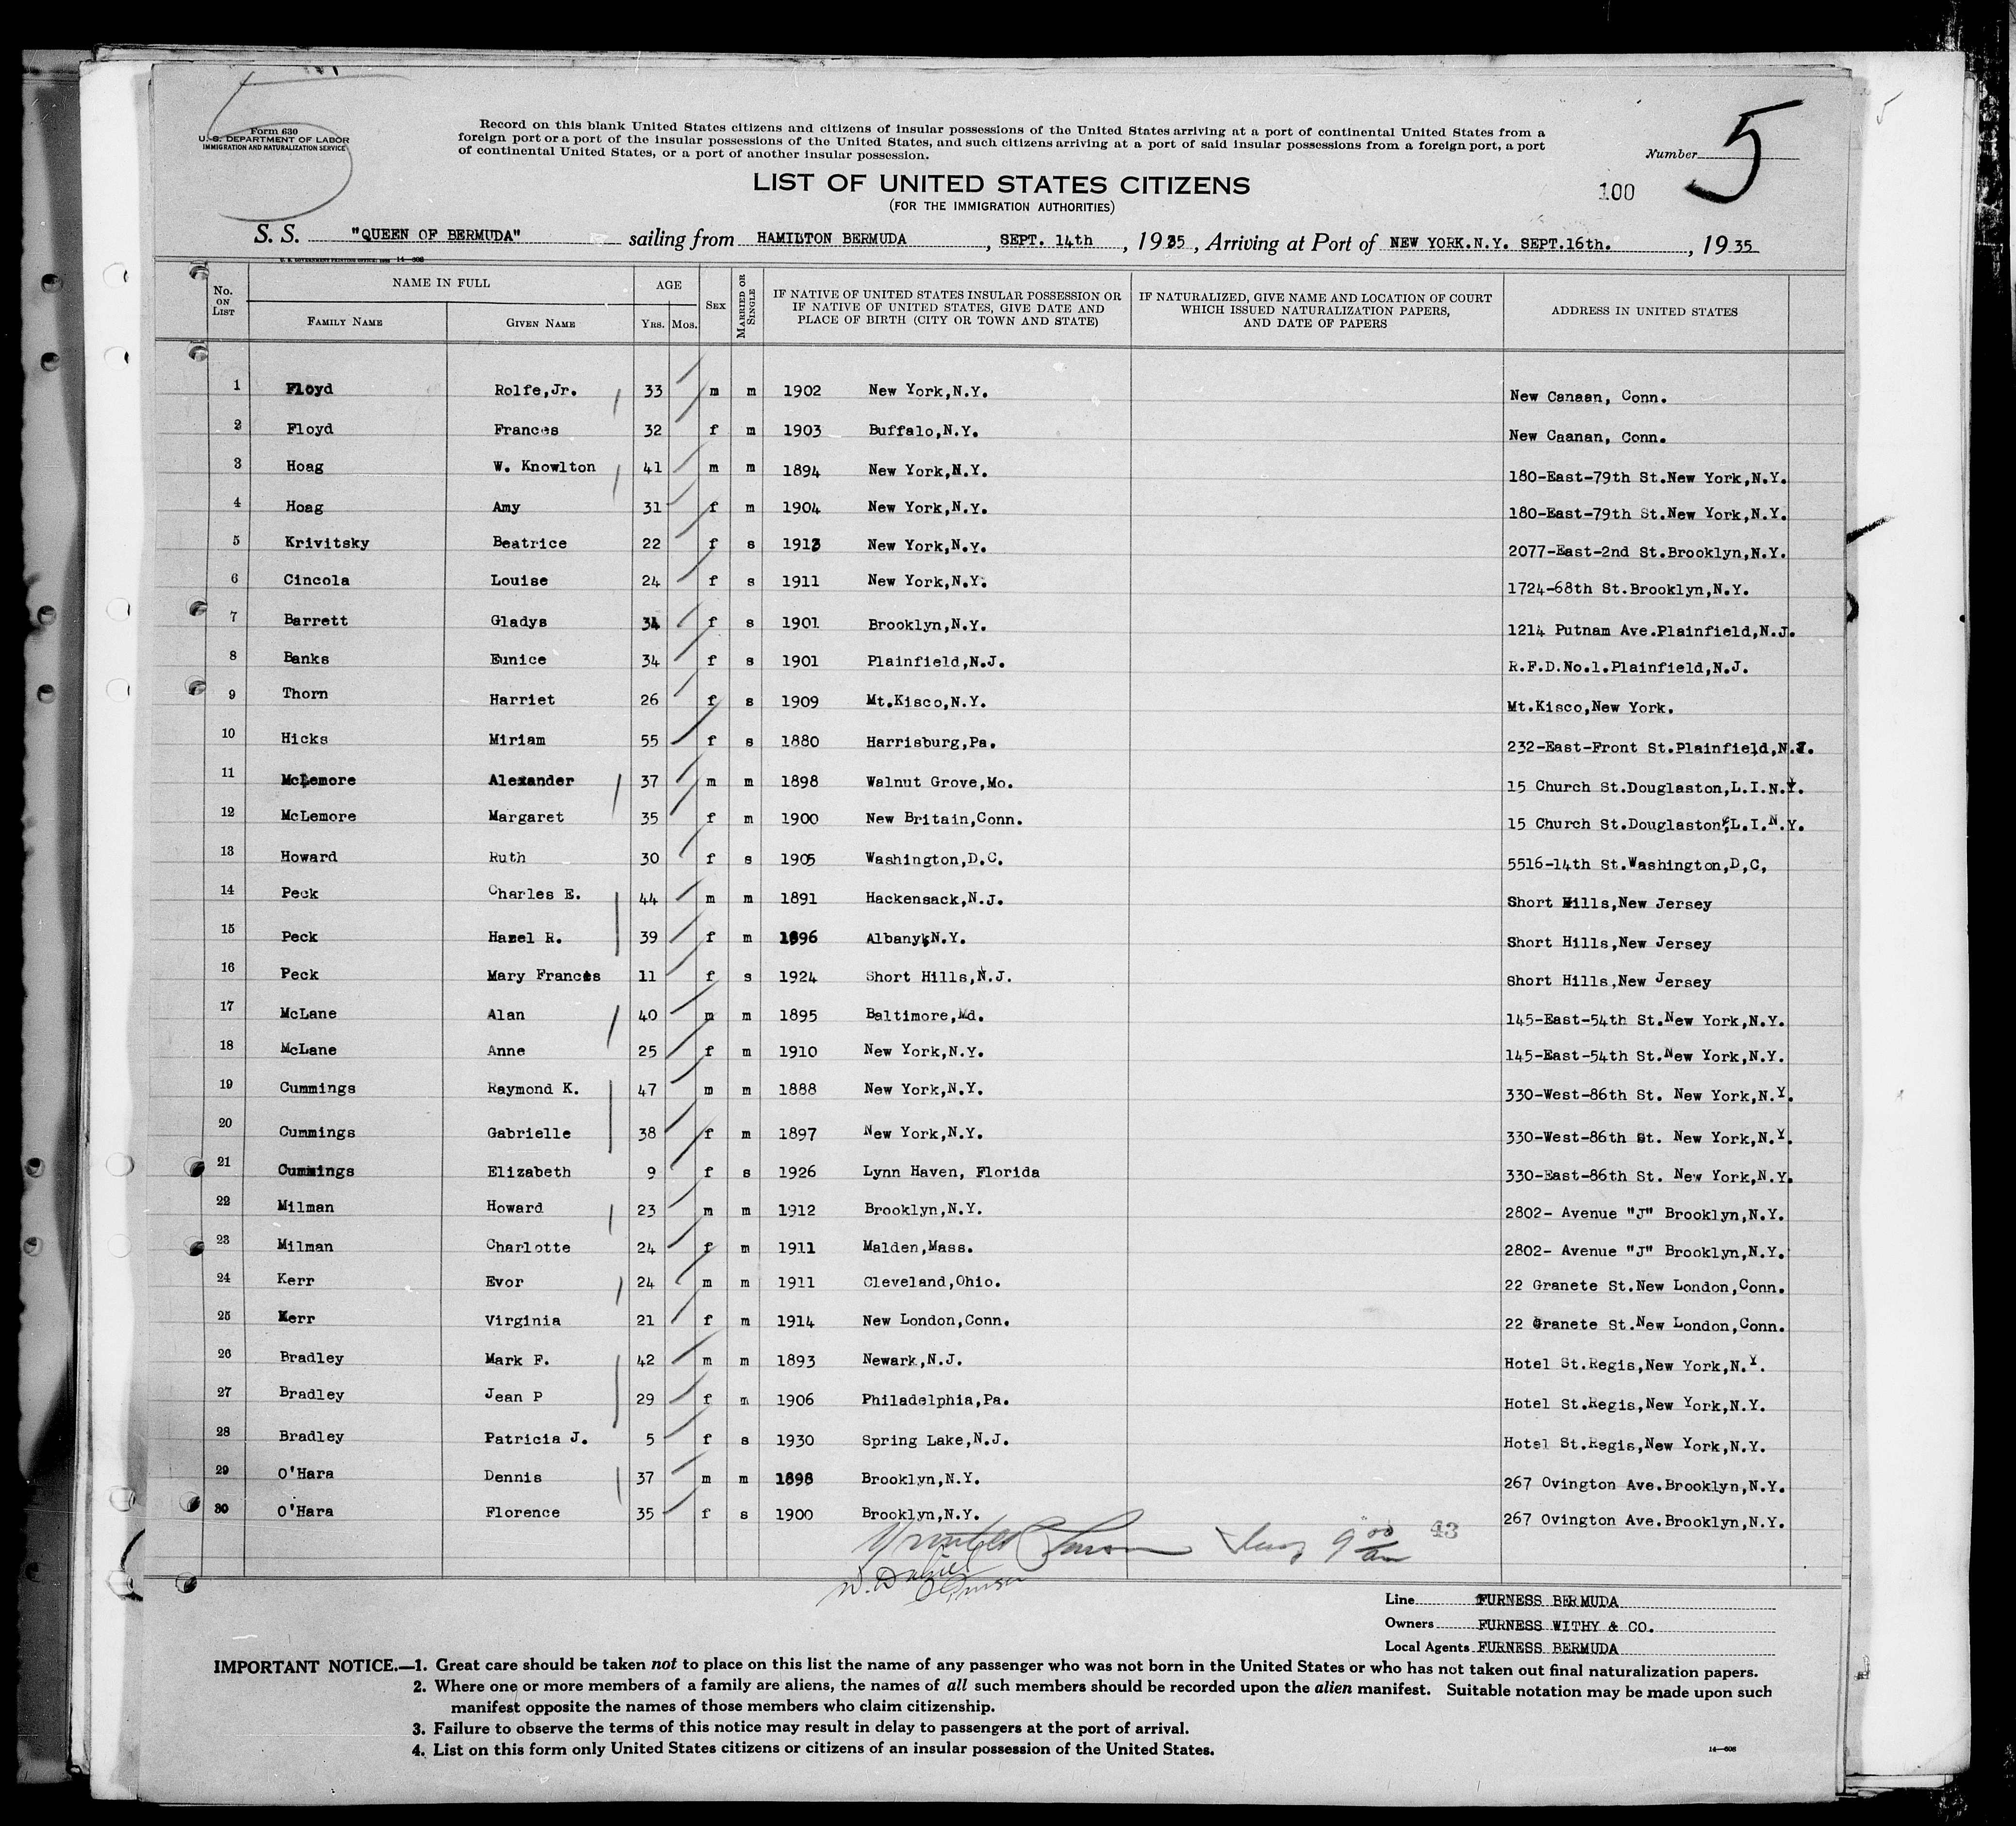 5
Form 630
U. S. DEPARTMENT OF LABOR
IMMIGRATION AND NATURALIZATION SERVICE
Record on this blank United States citizens and citizens of insular possessions of the United States arriving at a port of continental United States from a
foreign port or a port of the insular possessions of the United States, and such citizens arriving at a port of said insular possessions from a foreign port, a port
of continental United States, or a port of another insular possession.
Number 5
LIST OF UNITED STATES CITIZENS
100
(FOR THE IMMIGRATION AUTHORITIES)
S. S. "QUEEN OF BERMUDA" sailing from HAMILTON BERMUDA, SEPT. 14th, 1935, Arriving at Port of NEW YORK.N.Y. SEPT.16th., 1935
U. S. GOVERNMENT PRINTING OFFICE: 14-608
No. ON LIST NAME IN FULL AGE SEX MARRIED OR SINGLE IF NATIVE OF UNITED STATES INSULAR POSSESSION OR IF NATIVE OF UNITED STATES, GIVE DATE AND PLACE OF BIRTH (CITY OR TOWN AND STATE) IF NATURALIZED, GIVE NAME AND LOCATION OF COURT WHICH ISSUED NATURALIZATION PAPERS, AND DATE OF PAPERS ADDRESS IN UNITED STATES
FAMILY NAME GIVEN NAME YRS. MOS.
1 Floyd Rolfe,Jr. 33 m m 1902 New York,N.Y. New Canaan, Conn.
2 Floyd Frances 32 f m 1903 Buffalo,N.Y. New Caanan, Conn.
3 Hoag W. Knowlton 41 m m 1894 New York,N.Y. 180-East-79th St.New York,N.Y.
4 Hoag Amy 31 f m 1904 New York,N.Y. 180-East-79th St.New York,N.Y.
5 Krivitsky Beatrice 22 f s 1913 New York,N.Y. 2077-East-2nd St.Brooklyn,N.Y.
6 Cincola Louise 24 f s 1911 New York,N.Y. 1724-68th St.Brooklyn,N.Y.
7 Barrett Gladys 34 f s 1901 Brooklyn,N.Y. 1214 Putnam Ave.Plainfield,N.J.
8 Banks Eunice 34 f s 1901 Plainfield,N.J. R.F.D.No.1.Plainfield,N.J.
9 Thorn Harriet 26 f s 1909 Mt.Kisco,N.Y. Mt.Kisco,New York.
10 Hicks Miriam 55 f s 1880 Harrisburg,Pa. 232-East-Front St.Plainfield,N.J.
11 McLemore Alexander 37 m m 1898 Walnut Grove,Mo. 15 Church St.Douglaston,L.I.N.Y.
12 McLemore Margaret 35 f m 1900 New Britain,Conn. 15 Church St.Douglaston,L.I.N.Y.
13 Howard Ruth 30 f s 1905 Washington,D.C. 5516-14th St.Washington,D,C,
14 Peck Charles E. 44 m m 1891 Hackensack,N.J. Short Hills,New Jersey
15 Peck Hazel R. 39 f m 1896 Albany,N.Y. Short Hills,New Jersey
16 Peck Mary Frances 11 f s 1924 Short Hills,N.J. Short Hills,New Jersey
17 McLane Alan 40 m m 1895 Baltimore,Md. 145-East-54th St.New York,N.Y.
18 McLane Anne 25 f m 1910 New York,N.Y. 145-East-54th St.New York,N.Y.
19 Cummings Raymond K. 47 m m 1888 New York,N.Y. 330-West-86th St. New York,N.Y.
20 Cummings Gabrielle 38 f m 1897 New York,N.Y. 330-West-86th St. New York,N.Y.
21 Cummings Elizabeth 9 f s 1926 Lynn Haven, Florida 330-East-86th St. New York,N.Y.
22 Milman Howard 23 m m 1912 Brooklyn,N.Y. 2802- Avenue "J" Brooklyn,N.Y.
23 Milman Charlotte 24 f m 1911 Malden,Mass. 2802- Avenue "J" Brooklyn,N.Y.
24 Kerr Evor 24 m m 1911 Cleveland,Ohio. 22 Granete St.New London,Conn.
25 Kerr Virginia 21 f m 1914 New London,Conn. 22 Granete St.New London,Conn.
26 Bradley Mark F. 42 m m 1893 Newark,N.J. Hotel St.Regis,New York,N.Y.
27 Bradley Jean P 29 f m 1906 Philadelphia,Pa. Hotel St.Regis,New York,N.Y.
28 Bradley Patricia J. 5 f s 1930 Spring Lake,N.J. Hotel St.Regis,New York,N.Y.
29 O'Hara Dennis 37 m m 1898 Brooklyn,N.Y. 267 Ovington Ave.Brooklyn,N.Y.
30 O'Hara Florence 35 f s 1900 Brooklyn,N.Y. 267 Ovington Ave.Brooklyn,N.Y.
9 00 am 43
Line FURNESS BERMUDA
Owners FURNESS WITHY & CO.
Local Agents FURNESS BERMUDA
IMPORTANT NOTICE.—1. Great care should be taken not to place on this list the name of any passenger who was not born in the United States or who has not taken out final naturalization papers.
2. Where one or more members of a family are aliens, the names of all such members should be recorded upon the alien manifest. Suitable notation may be made upon such
manifest opposite the names of those members who claim citizenship.
3. Failure to observe the terms of this notice may result in delay to passengers at the port of arrival.
4. List on this form only United States citizens or citizens of an insular possession of the United States.
14-608